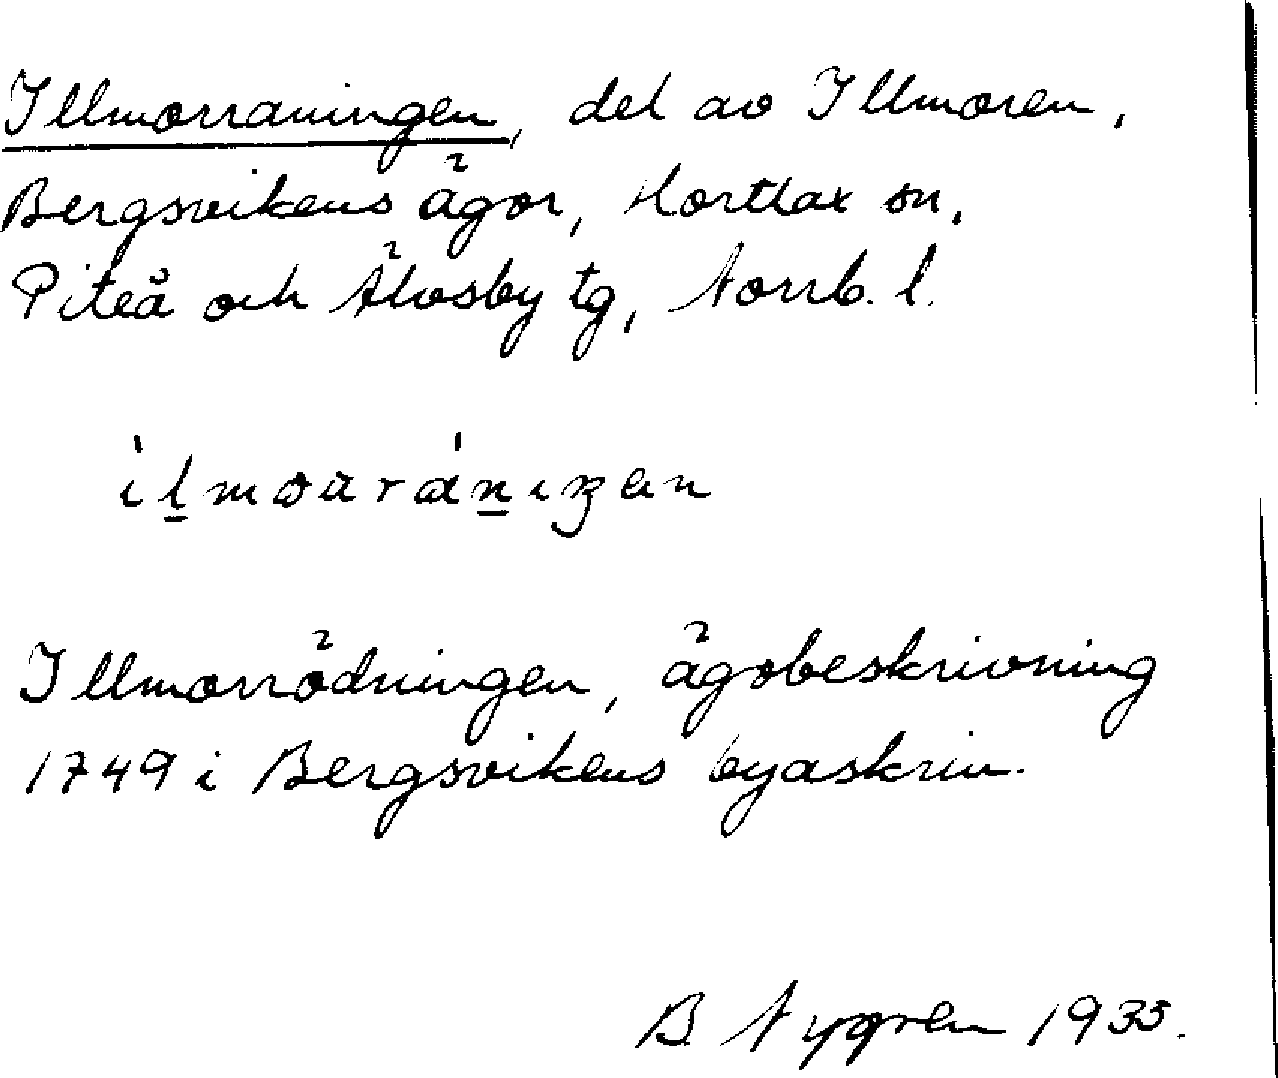 Illmorraningen, del av Illmoren,
Bergsvikens ägor, Hortlax sn,
Piteå och Älvsby tg, Norrb. l.
Illmorrödningen, ägobeskrivning
1749 i Bergsvikens byaskrin.
B. Nygren 1935.